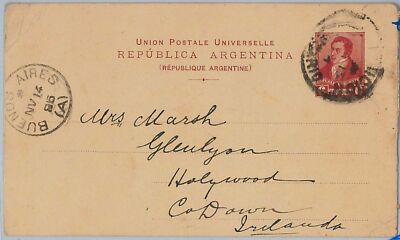 UNION POSTALE UNIVERSELLE
REPÚBLICA ARGENTINA
(RÉPUBLIQUE ARGENTINE)
BUENOS AIRES
NOV 14
95
(A)
Mrs Marsh
Glenlyon
Holywood
Co Down
Irlanda